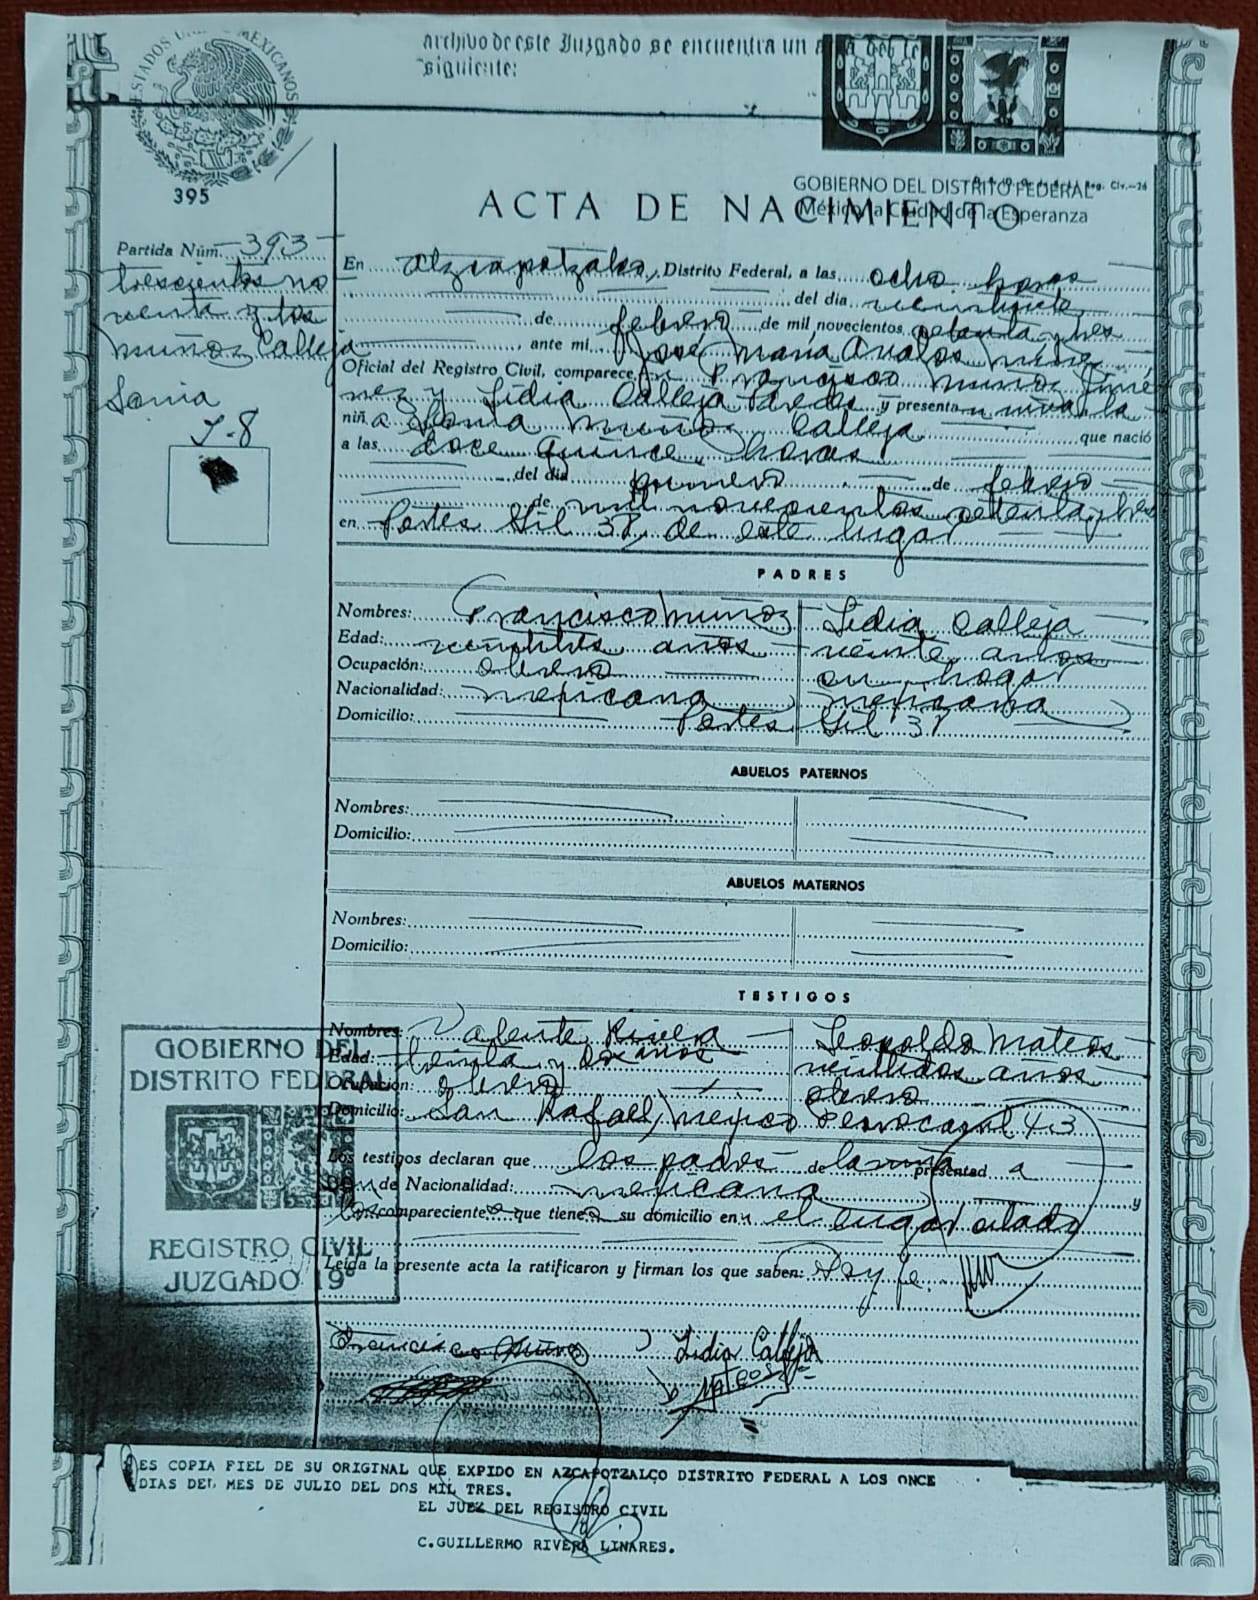 archivo de este Juzgado se encuentra un
siguiente:
ESTADOS UNIDOS MEXICANOS
395
GOBIERNO DEL DISTRITO FEDERAL
México la Ciudad de la Esperanza
Reg. Civ.-26
ACTA DE NACIMIENTO
Partida Núm. 393
trescientos no
venta y tres
Muñoz Calleja
Sonia
J-8
En Atzcapotzalco, Distrito Federal, a las ocho horas
del día veintisiete
de febrero de mil novecientos setenta y tres
ante mi José María Avalos
Oficial del Registro Civil, comparecen Francisco Muñoz Jimé
nez y Lidia Calleja Paredes y presentan viva la
niña Sonia Muñoz Calleja que nació
a las doce quince horas
del día primero de febrero
de mil novecientos setenta y tres
en Portes Gil 37 de este lugar
PADRES
Nombres: Francisco Muñoz Lidia Calleja
Edad: años veinte años
Ocupación: obrero su hogar
Nacionalidad: mexicana mexicana
Domicilio: Portes Gil 37
ABUELOS PATERNOS
Nombres:
Domicilio:
ABUELOS MATERNOS
Nombres:
Domicilio:
TESTIGOS
Nombres: Valente Rivera Leopoldo Mateos
Edad: treinta y dos años veintidos años
Ocupación: obrero obrero
Domicilio: San Rafael, México Ferrocarril 43
Los testigos declaran que los padres de la niña presentada
son de Nacionalidad: mexicana y
los comparecientes que tienen su domicilio en el lugar citado
Leída la presente acta la ratificaron y firman los que saben: Doy fe.
Francisco Muñoz Lidia Calleja
Mateos
GOBIERNO DEL
DISTRITO FEDERAL
REGISTRO CIVIL
JUZGADO 19º
ES COPIA FIEL DE SU ORIGINAL QUE EXPIDO EN AZCAPOTZALCO DISTRITO FEDERAL A LOS ONCE
DIAS DEL MES DE JULIO DEL DOS MIL TRES.
EL JUEZ DEL REGISTRO CIVIL
C.GUILLERMO RIVERA LINARES.